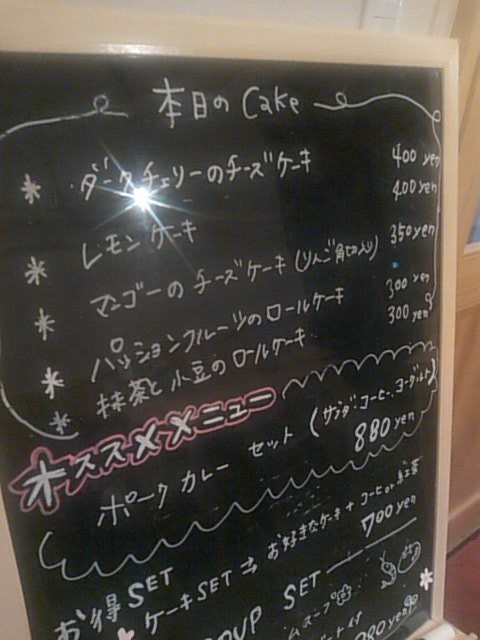 本日のCake
* ダークチェリーのチーズケーキ 400 yen
* レモンケーキ 400 yen
* マンゴーのチーズケーキ(りんご角切入り) 350yen
* パッションフルーツのロールケーキ 300 yen
* 抹茶と小豆のロールケーキ 300 yen
オススメメニュー
ポークカレーセット(サラダ、コーヒー、ヨーグルト)
880 yen
お得SET
ケーキSET⇒お好きなケーキ+コーヒーor紅茶
700 yen
SET